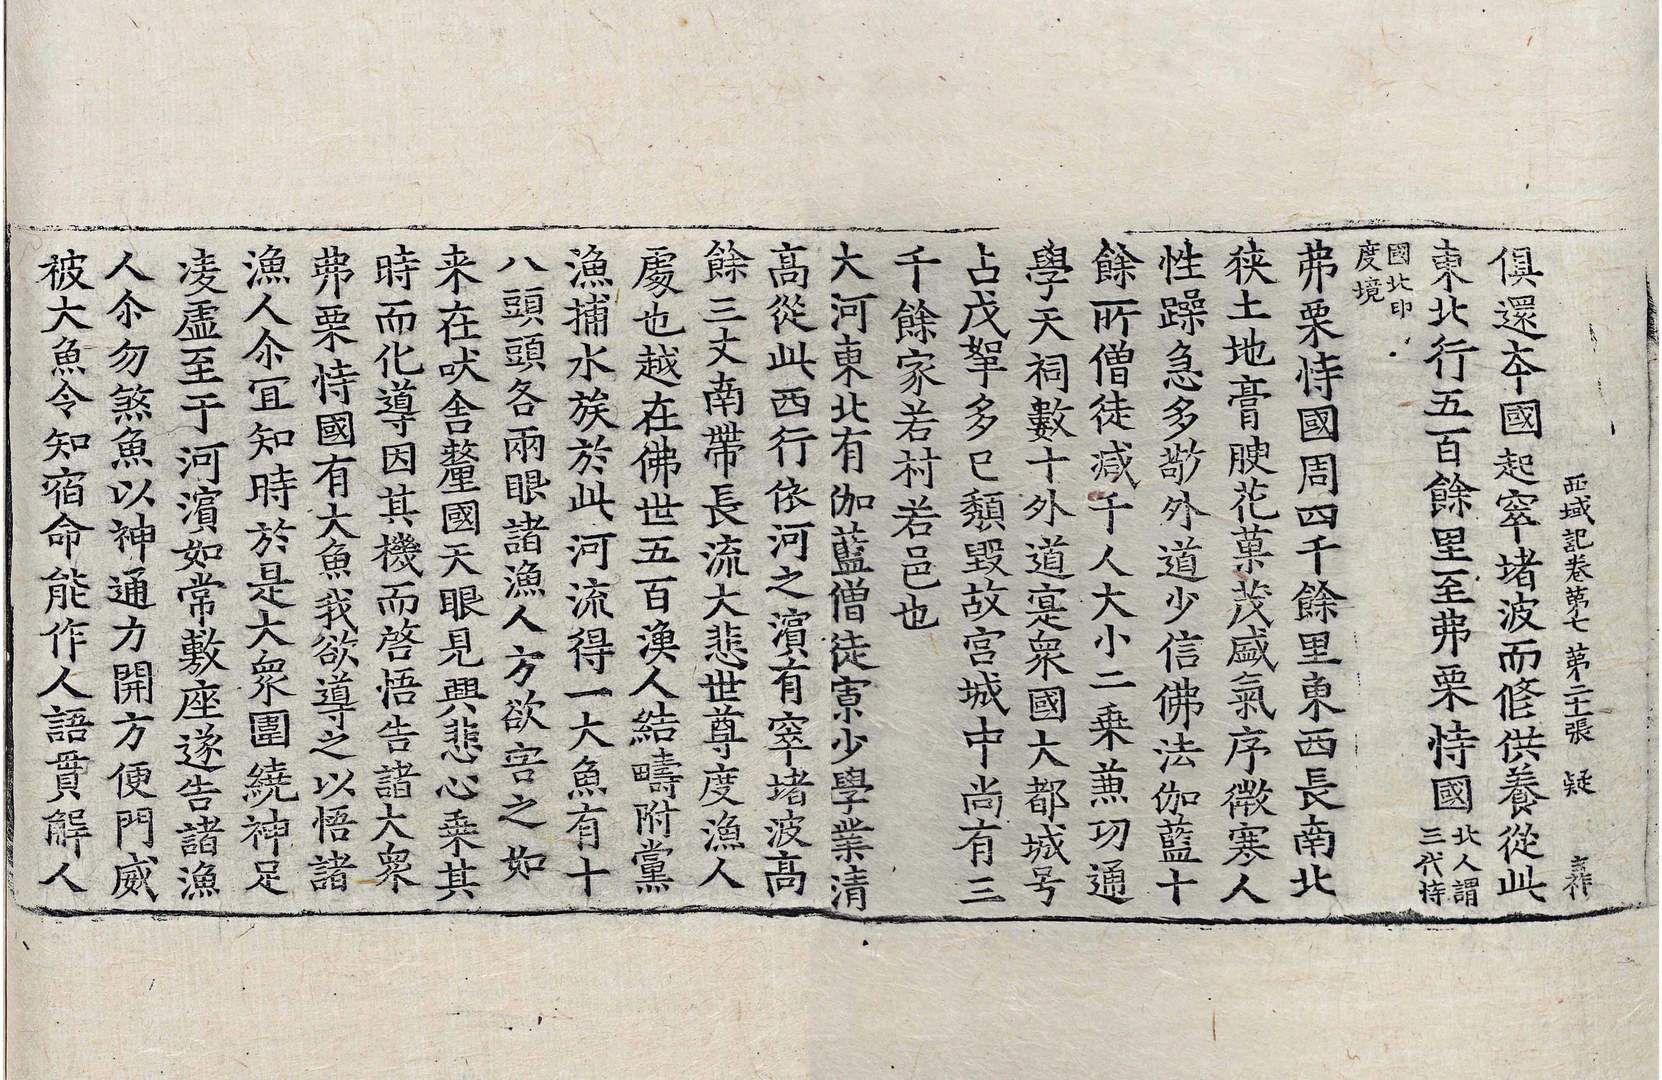 西域記卷第七 第二十張 疑
俱還本國起窣堵波而修供養從此
東北行五百餘里至弗栗恃國北人謂三伐恃
國北印度境
弗栗恃國周四千餘里東西長南北
狹土地膏腴花菓茂盛氣序微寒人
性躁急多敬外道少信佛法伽藍十
餘所僧徒減千人大小二乗兼功通
學天祠數十外道寔衆國大都城号
占戊拏多已頹毀故宮城中尚有三
千餘家若村若邑也
大河東北有伽藍僧徒寡少學業清
高從此西行依河之濱有窣堵波高
餘三丈南帶長流大悲世尊度漁人
處也越在佛世五百漁人結疇附黨
漁捕水族於此河流得一大魚有十
八頭頭各兩眼諸漁人方欲害之如
来在吠舍釐國天眼見興悲心乗其
時而化導因其機而啓悟告諸大衆
弗栗恃國有大魚我欲導之以悟諸
漁人尒宜知時於是大衆圍繞神足
凌虛至于河濱如常敷座遂告諸漁
人尒勿煞魚以神通力開方便門威
被大魚令知宿命能作人語貫解人